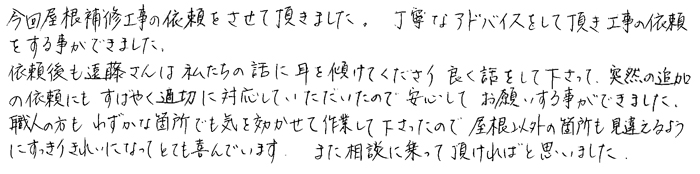 今回屋根補修工事の依頼をさせて頂きました。 丁寧なアドバイスをして頂き工事の依頼
をする事ができました。
依頼後も遠藤さんは私たちの話に耳を傾けてくださり良く話をして下さって、突然の追加
の依頼にもすばやく適切に対応していただいたので安心してお願いする事ができました。
職人の方もわずかな箇所でも気を効かせて作業して下さったので屋根以外の箇所も見違えるよう
にすっきりきれいになってとても喜んでいます。 また相談に乗って頂ければと思いました。